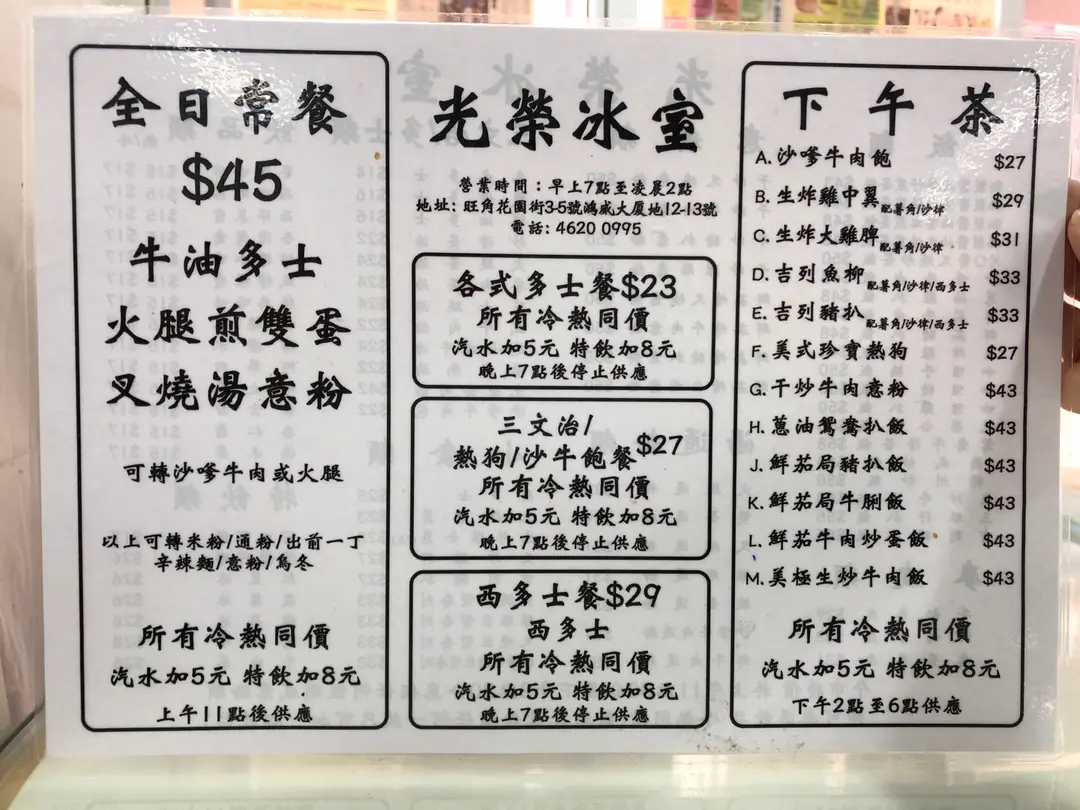 全日常餐
$45
牛油多士
火腿煎雙蛋
叉燒湯意粉
可轉沙嗲牛肉或火腿
以上可轉米粉/通粉/出前一丁
辛辣麵/意粉/烏冬
所有冷熱同價
汽水加5元 特飲加8元
上午11點後供應
光榮冰室
營業時間：早上7點至凌晨2點
地址: 旺角花園街3-5號鴻威大厦地12-13號
電話: 4620 0995
各式多士餐$23
所有冷熱同價
汽水加5元 特飲加8元
晚上7點後停止供應
三文治/
熱狗/沙牛飽餐$27
所有冷熱同價
汽水加5元 特飲加8元
晚上7點後停止供應
西多士餐$29
西多士
所有冷熱同價
汽水加5元 特飲加8元
晚上7點後停止供應
下午茶
A. 沙嗲牛肉飽 $27
B. 生炸雞中翼配薯角/沙律 $29
C. 生炸大雞脾配薯角/沙律 $31
D. 吉列魚柳配薯角/沙律/西多士 $33
E. 吉列豬扒配薯角/沙律/西多士 $33
F. 美式珍寶熱狗 $27
G. 干炒牛肉意粉 $43
H. 蔥油鴛鴦扒飯 $43
J. 鮮茄局豬扒飯 $43
K. 鮮茄局牛脷飯 $43
L. 鮮茄牛肉炒蛋飯 $43
M. 美極生炒牛肉飯 $43
所有冷熱同價
汽水加5元 特飲加8元
下午2點至6點供應